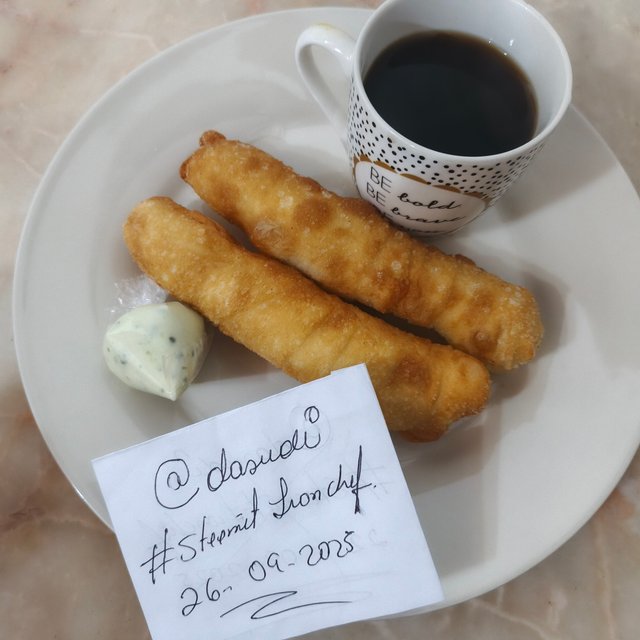 BE bold
BE brave
@dasudi
#Steemit Iron chef.
26-09-2025